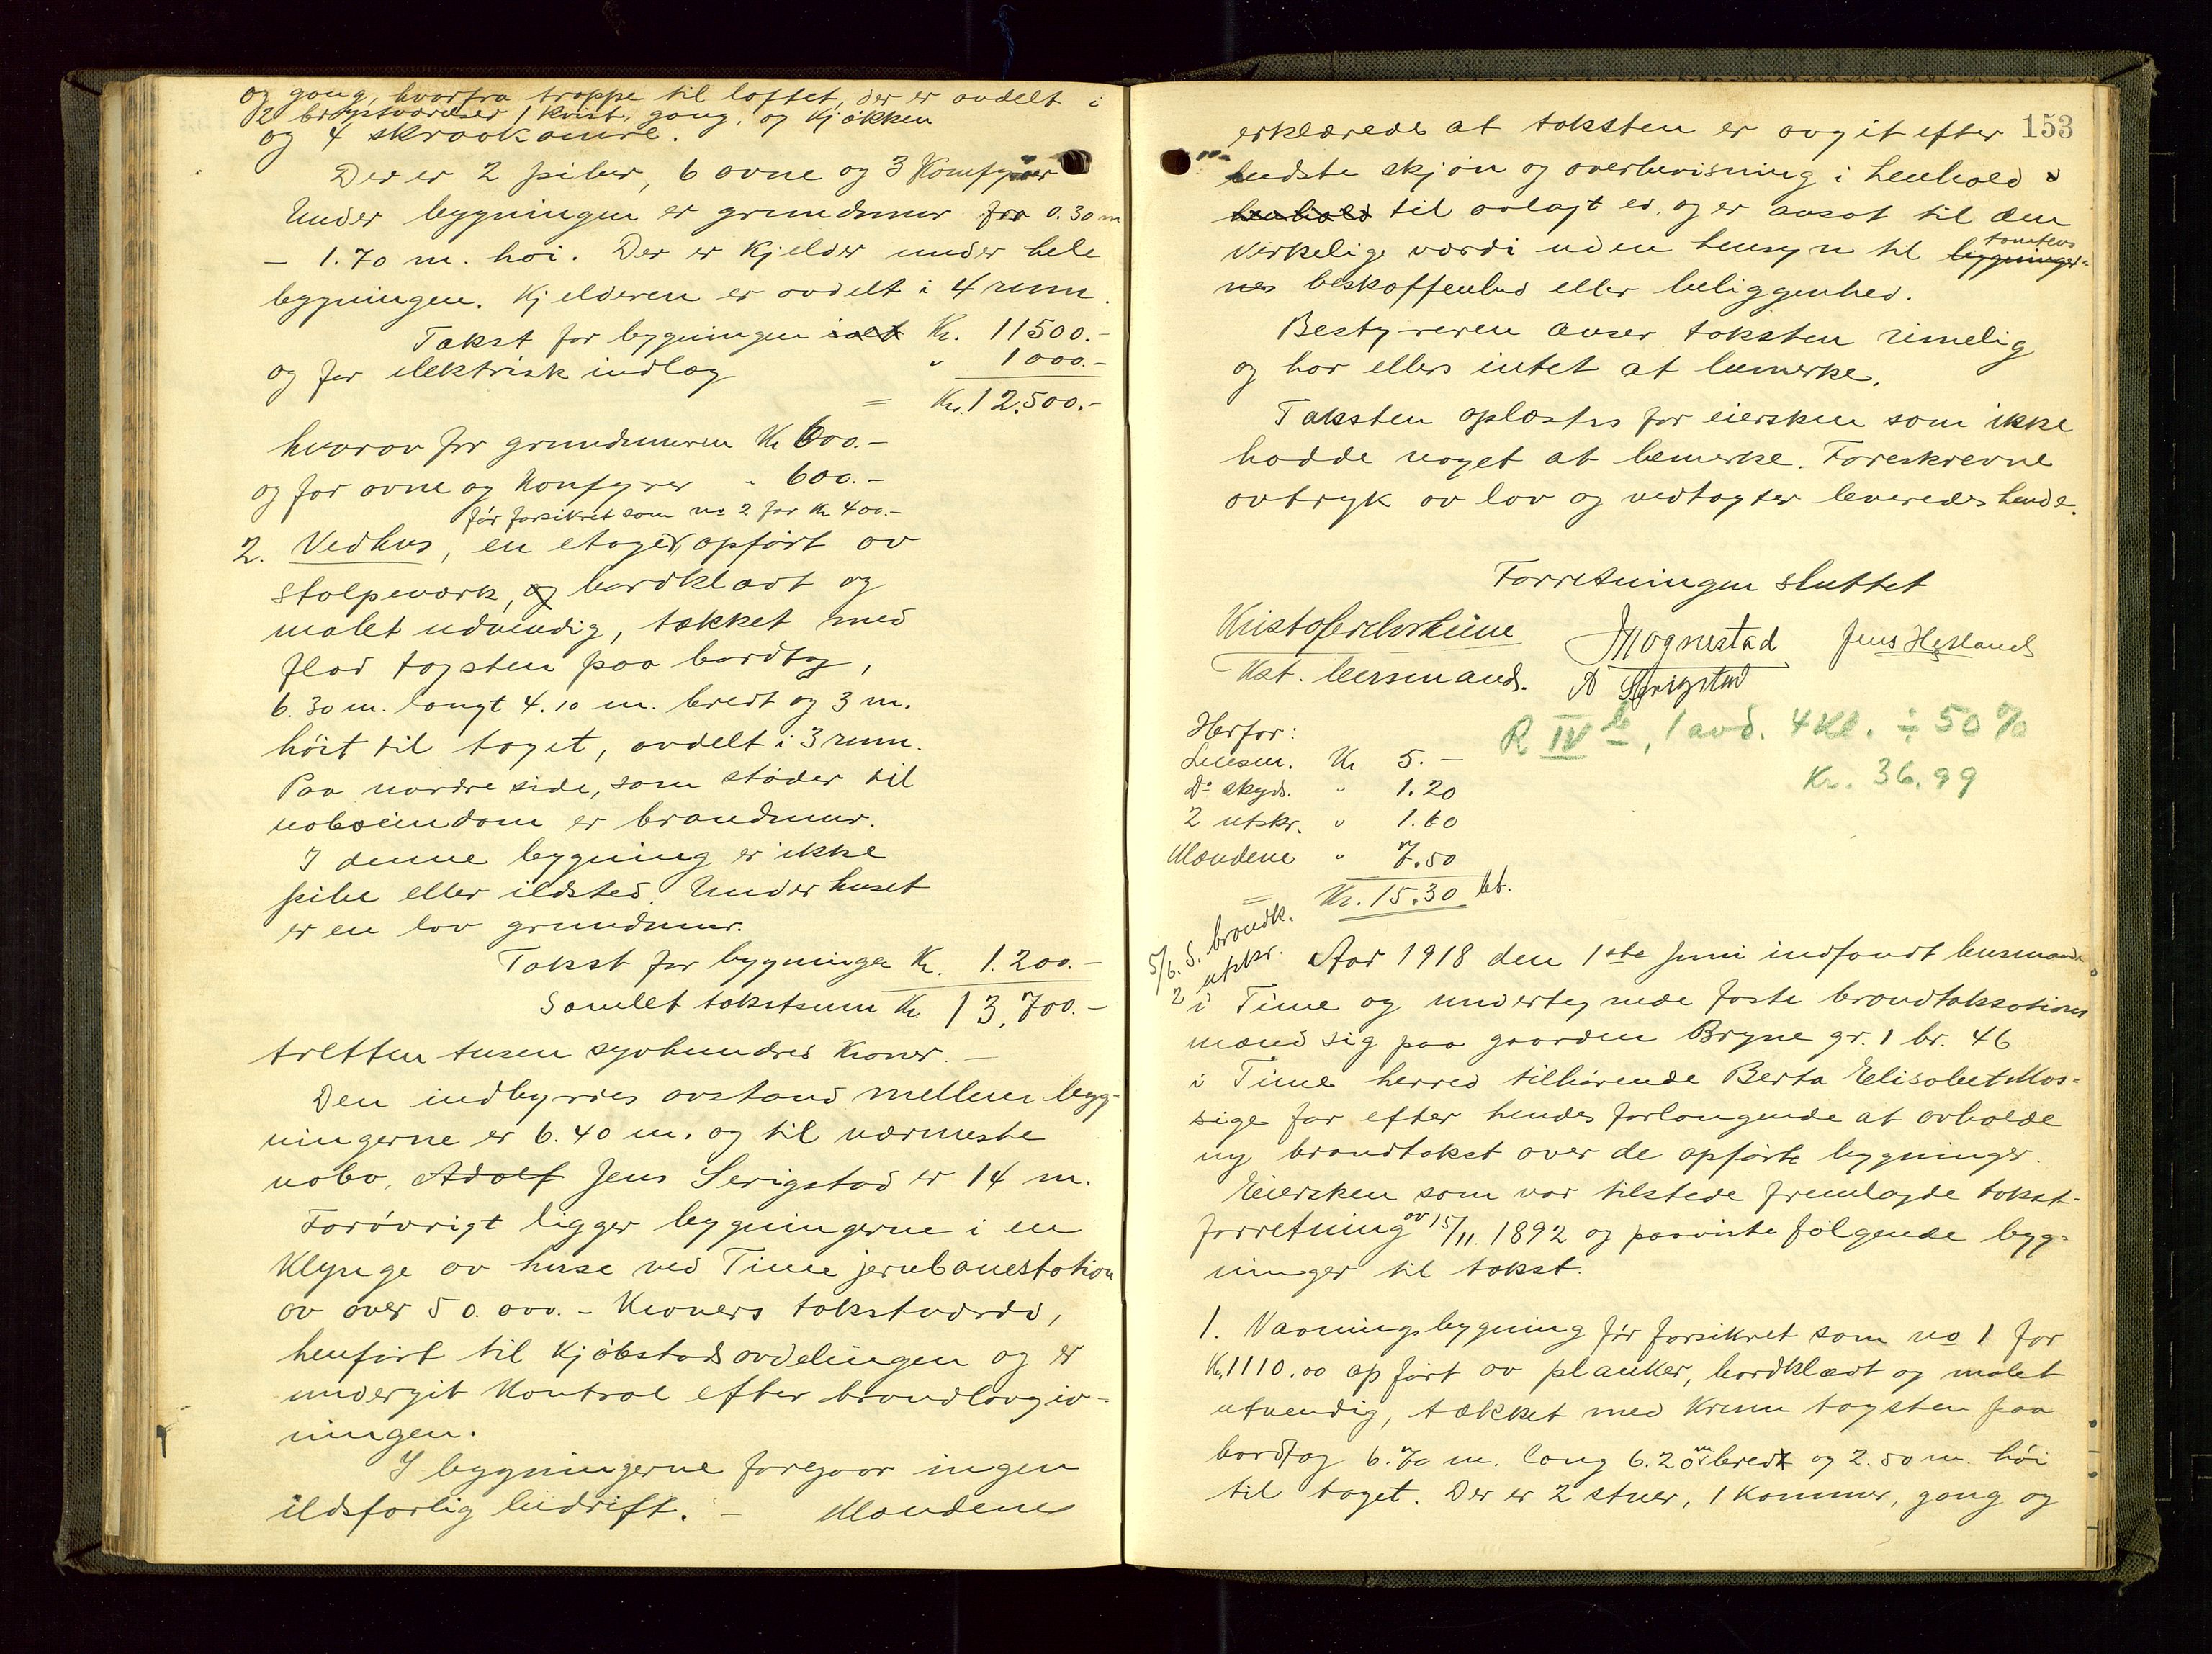 og gang, hvorfra trappe til loftet, der er avdelt i
2 brystværelser 1 kvist, gang, og kjøkken
og 4 skraakamre.
Der er 2 piber, 6 ovne og 3 Komfyrer
Under bygningen er grundmur fra 0.30 m
– 1.70 m. høi. Der er kjelder under hele
bygningen. Kjelderen er avdelt i 4 rum.
Takst for bygningen ialt Kr. 11500.-
og for elektrisk indlæg " 1000.-
= Kr. 12.500.-
hvorav for grundmuren Kr 600.-
og for ovne og Komfyrer " 600.-
før forsikret som no 2 for Kr 400.-
2. Vedhus, en etages, opført av
stolpeverk, og bordklædt og
malet udvendig, tækket med
flad tagsten paa bordtag,
6.30 m. langt 4.10 m. bredt og 3 m.
høit til taget, avdelt i 3 rum.
Paa nordre side, som støder til
naboeiendom er brandmur.
I denne bygning er ikke
pibe eller ildsted. Under huset
er en lav grundmur.
Takst for bygningen Kr. 1.200.-
Samlet takstsum Kr. 13.700.-
tretten tusen syvhundred Kroner. –
Den indbyrdes avstand mellem byg-
ningerne er 6.40 m. og til nærmeste
nabo, Adolf Jens Serigstad er 14 m.
Forøvrigt ligger bygningerne i en
Klynge av huse ved Time jernbanestation
av over 50.000.- Kroners takstværdi,
henført til kjøbstadsavdelingen og er
undergit Kontrol efter brandlovgiv-
ningen.
I bygningerne foregaar ingen
ildsfarlig bedrift. – Mændene
153
erklærede at taksten er avgit efter
bedste skjøn og overbevisning i henhold
henhold til avlagt ed, og er ansat til den
virkelige værdi uden hensyn til bygninger-
tomtens
nes beskaffenhed eller beliggenhed.
Bestyreren anser taksten rimelig
og har ellers intet at bemerke.
Taksten oplæstes for eiersken som ikke
hadde noget at bemerke. Foreskrevne
avtryk av lov og vedtægter leveredes hende.
Forretningen sluttet
Mognestad Jens Hetland
Kst. lensmand. A Serigstad
Herfor:
Lensm. Kr 5.–
Do skyds. " 1.20
2 utskr. " 1.60
Mændene " 7.50
= Kr. 15.30 bt.
R IV b, 1 avd. 4 Kl. ÷ 50 %
Kr. 36.99
5/6. S. brandk.
2 utskr.
Aar 1918 den 1ste Juni indfandt lensmanden
i Time og undertegnede faste brandtaksations
mænd sig paa gaarden Bryne gr. 1 br. 46
i Time herred tilhørende Berta Elisabet Mos-
sige for efter hendes forlangende at avholde
ny brandtakst over de opførte bygninger.
Eiersken som var tilstede fremlagde takst-
forretning av 15/11. 1892 og paaviste følgende byg-
ninger til takst.
1. Vaaningsbygning før forsikret som no 1 for
Kr. 1110.00 opført av planker, bordklædt og malet
utvendig, tækket med Krum tagsten paa
bordtag 6.70 m. lang 6.20 m bredt og 2.50 m. høi
til taget. Der er 2 stuer, 1 Kammer, gang og